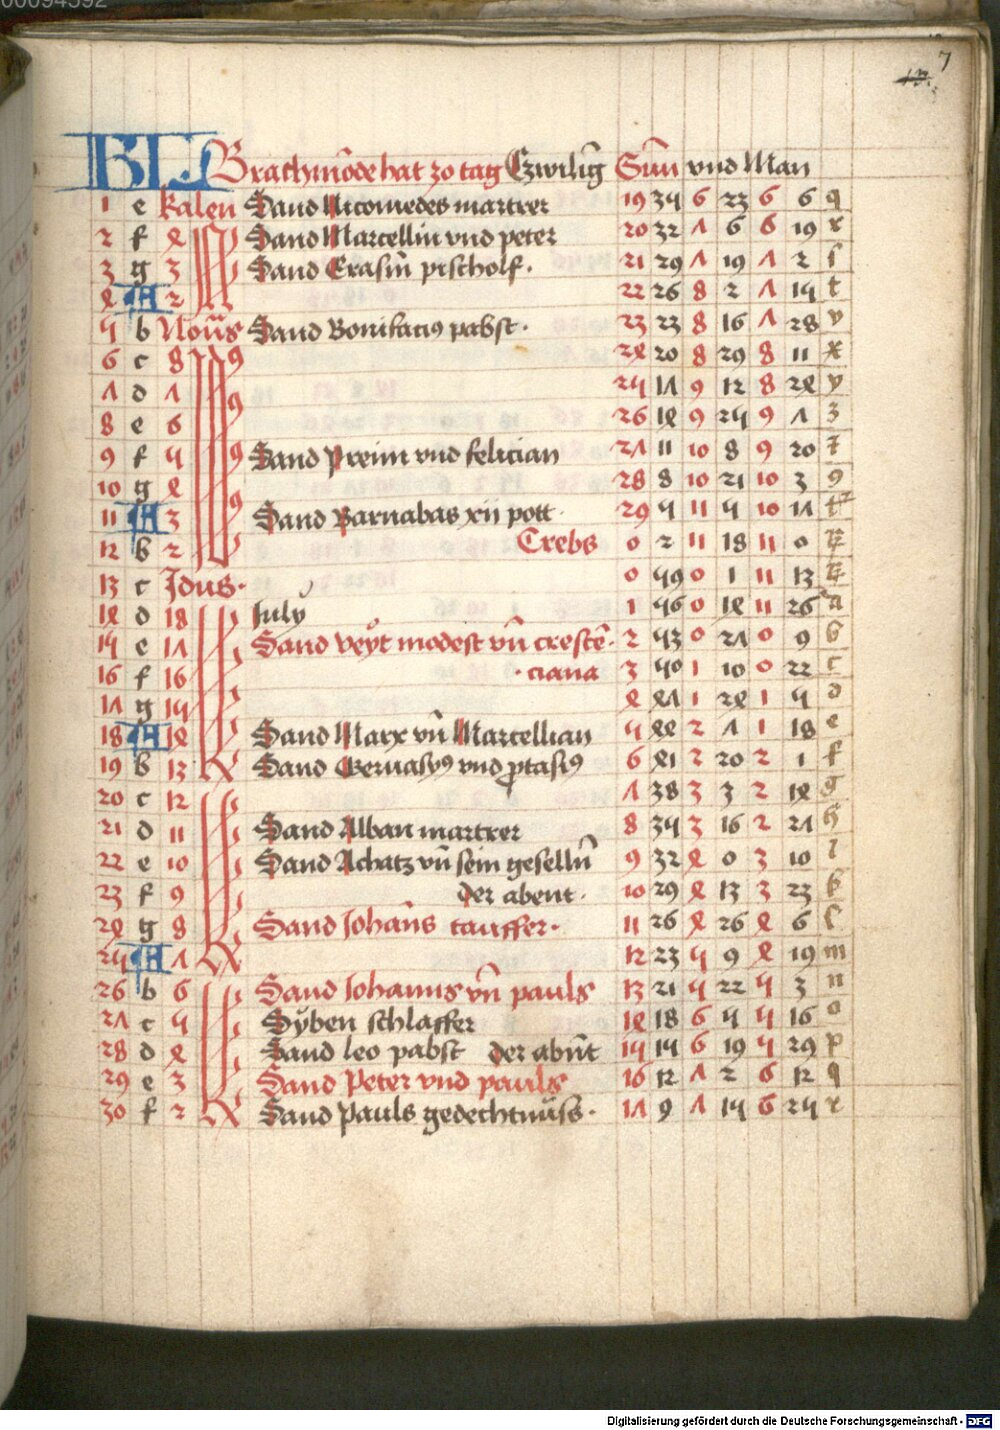 00094592
7
KL Brachmōde hat 30 tag Czwilīg Sūn vnd Man
1 e kalen Sand Nicomedes martrer 19 34 6 23 6 6 q
2 f 4 Sand Marcellin vnd peter 20 32 7 6 6 19 r
3 g 3 Sand Erasm̄ pischolf. 21 29 7 19 7 2 ſ
4 A 2 22 26 8 2 7 14 t
5 b Nōns Sand Bonifacius pabst. 23 23 8 16 7 28 v
6 c 8 24 20 8 29 8 11 x
7 d 7 25 17 9 12 8 24 y
8 e 6 26 14 9 25 9 7 z
9 f 5 Sand Preim vnd felician 27 11 10 8 9 20
10 g 4 28 8 10 21 10 3 9
11 A 3 Sand Barnabas xii pott 29 5 11 5 10 17
12 b 2 Crebs 0 2 11 18 11 0
13 c Jdus. 0 59 0 1 11 13
14 d 18 July 1 56 0 14 11 26 a
15 e 17 Sand veyt modest vn̄ crescē. 2 53 0 27 0 9 b
16 f 16 .ciana 3 50 1 10 0 22 c
17 g 15 4 47 1 24 1 5 d
18 A 14 Sand Marx vn̄ Marcellian 5 44 2 7 1 18 e
19 b 13 Sand Geruasyus vnd ptasius 6 41 2 20 2 1 f
20 c 12 7 38 3 3 2 14 g
21 d 11 Sand Alban martrer 8 35 3 16 2 27 h
22 e 10 Sand Achatz vn̄ sein geselln̄ 9 32 4 0 3 10 i
23 f 9 der abent. 10 29 4 13 3 23 k
24 g 8 Sand Johan̄s tauffer. 11 26 4 26 4 6 l
25 A 7 12 23 5 9 4 19 m
26 b 6 Sand Johanns vn̄ pauls 13 21 5 22 5 3 n
27 c 5 Syben schlaffer 14 18 6 5 5 16 o
28 d 4 Sand leo pabst der abn̄t 15 15 6 19 5 29 p
29 e 3 Sand Peter vnd pauls 16 12 7 2 6 12 q
30 f 2 Sand Pauls gedechtnüss. 17 9 7 15 6 25 r
Digitalisierung gefördert durch die Deutsche Forschungsgemeinschaft - DFG